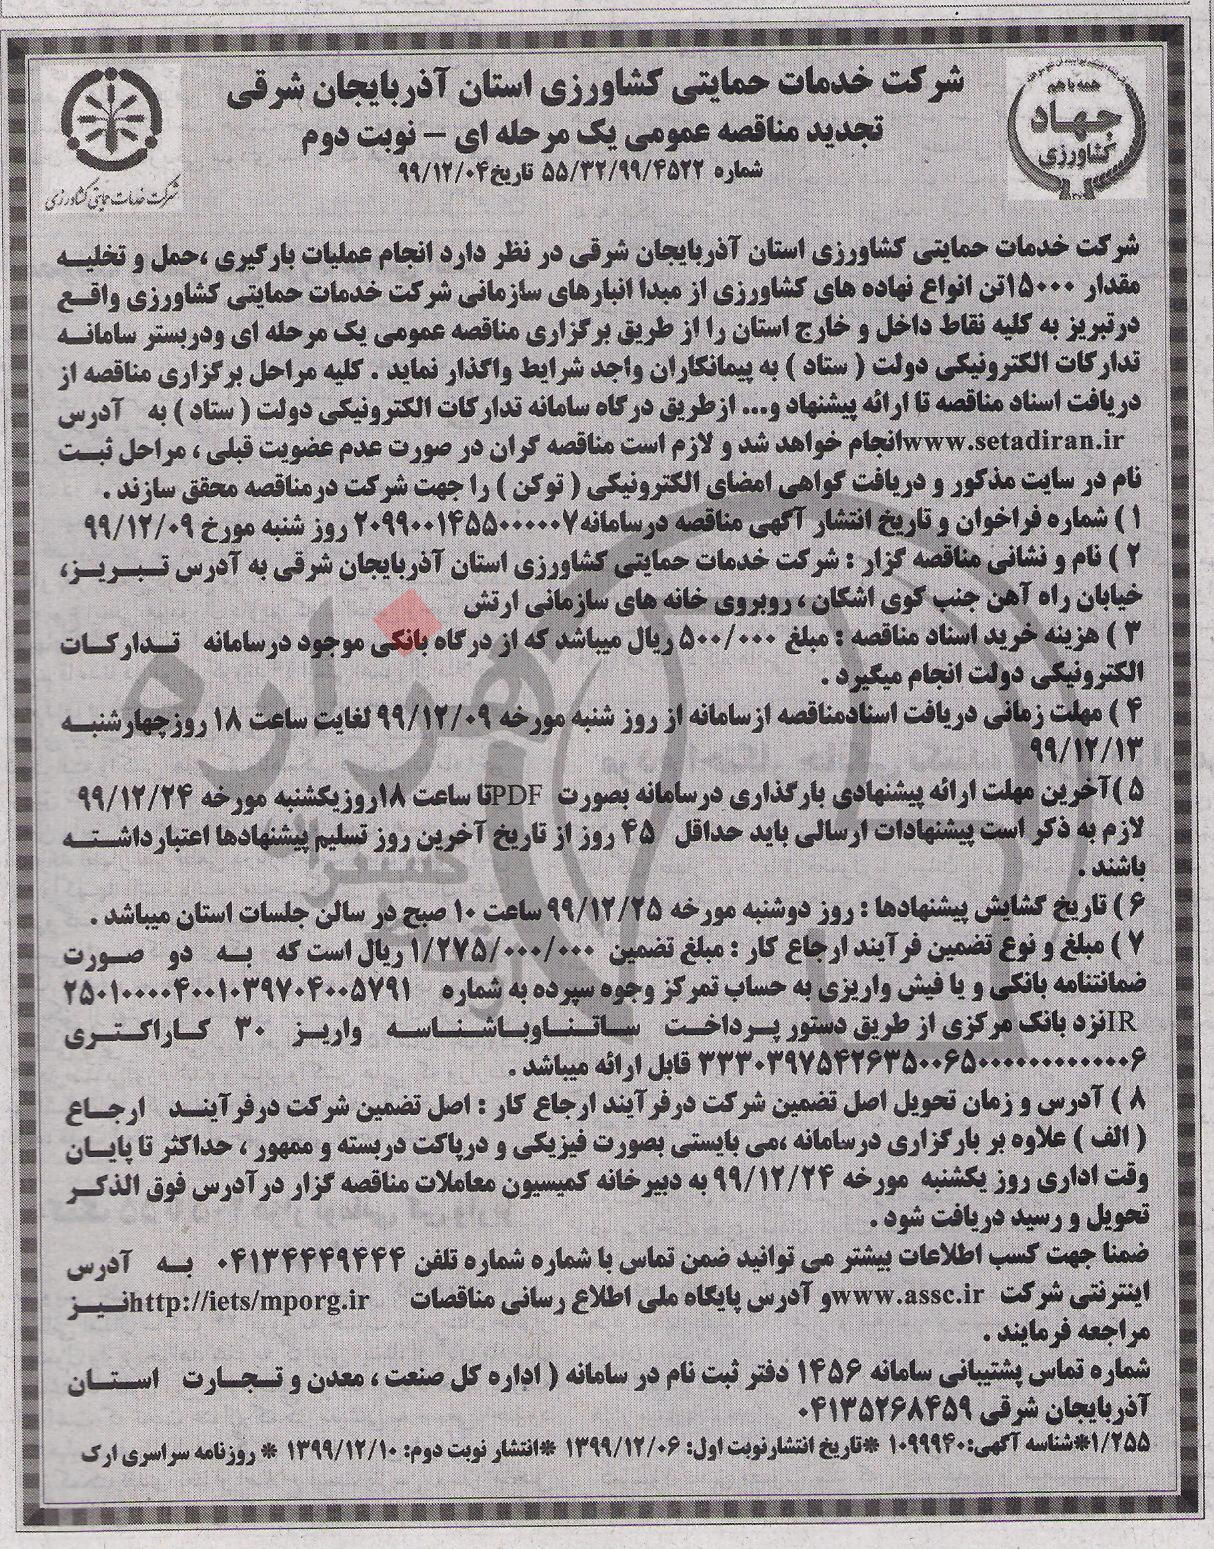 شرکت خدمات حمایتی کشاورزی استان آذربایجان شرقی
تجدید مناقصه عمومی یک مرحله ای – نوبت دوم
شماره ۵۵/۳۲/۹۹/۴۵۲۲ تاریخ۹۹/۱۲/۰۴
همه با هم
جهاد
کشاورزی
شرکت خدمات حمایتی کشاورزی
شرکت خدمات حمایتی کشاورزی استان آذربایجان شرقی در نظر دارد انجام عملیات بارگیری ،حمل و تخلیـه
مقدار ۱۵۰۰۰تن انواع نهاده های کشاورزی از مبدا انبارهای سازمانی شرکت خدمات حمایتی کشاورزی واقـع
درتبریز به کلیه نقاط داخل و خارج استان را از طریق برگزاری مناقصه عمومی یک مرحله ای ودربستر سامانـه
تدارکات الکترونیکی دولت ( ستاد ) به پیمانکاران واجد شرایط واگذار نماید . کلیه مراحل برگزاری مناقصه از
دریافت اسناد مناقصه تا ارائه پیشنهاد و... ازطریق درگاه سامانه تدارکات الکترونیکی دولت ( ستاد ) به آدرس
www.setadiran.irانجام خواهد شد و لازم است مناقصه گران در صورت عدم عضویت قبلی ، مراحل ثبـت
نام در سایت مذکور و دریافت گواهی امضای الکترونیکی ( توکن ) را جهت شرکت درمناقصه محقق سازند .
۱ ) شماره فراخوان و تاریخ انتشار آگهی مناقصه درسامانه۲۰۹۹۰۰۱۴۵۵۰۰۰۰۰۷ روز شنبه مورخ ۹۹/۱۲/۰۹
۲ ) نام و نشانی مناقصه گزار : شرکت خدمات حمایتی کشاورزی استان آذربایجان شرقی به آدرس تـبـریـز،
خیابان راه آهن جنب کوی اشکان ، روبروی خانه های سازمانی ارتش
۳ ) هزینه خرید اسناد مناقصه : مبلغ ۵۰۰/۰۰۰ ریال میباشد که از درگاه بانکی موجود درسامانه تـدارکـات
الکترونیکی دولت انجام میگیرد .
۴ ) مهلت زمانی دریافت اسنادمناقصه ازسامانه از روز شنبه مورخه ۹۹/۱۲/۰۹ لغایت ساعت ۱۸ روزچهارشنبـه
۹۹/۱۲/۱۳
۵ )آخرین مهلت ارائه پیشنهادی بارگذاری درسامانه بصورت PDFتا ساعت ۱۸روزیکشنبه مورخه ۹۹/۱۲/۲۴
لازم به ذکر است پیشنهادات ارسالی باید حداقل ۴۵ روز از تاریخ آخرین روز تسلیم پیشنهادها اعتبارداشـتـه
باشند .
۶ ) تاریخ گشایش پیشنهادها : روز دوشنبه مورخه ۹۹/۱۲/۲۵ ساعت ۱۰ صبح در سالن جلسات استان میباشد .
۷ ) مبلغ و نوع تضمین فرآیند ارجاع کار : مبلغ تضمین ۱/۲۷۵/۰۰۰/۰۰۰ ریال است که بـه دو صـورت
ضمانتنامه بانکی و یا فیش واریزی به حساب تمرکز وجوه سپرده به شماره ۲۵۰۱۰۰۰۰۴۰۰۱۰۳۹۷۰۴۰۰۵۷۹۱
IRنزد بانک مرکزی از طریق دستور پـرداخـت سـاتـنـاوبـاشـنـاسـه واریـز ۳۰ کـاراکـتـری
۳۳۳۰۳۹۷۵۴۲۶۳۵۰۰۶۵۰۰۰۰۰۰۰۰۰۰۰۶ قابل ارائه میباشد .
۸ ) آدرس و زمان تحویل اصل تضمین شرکت درفرآیند ارجاع کار : اصل تضمین شرکت درفرآینـد ارجـاع
( الف ) علاوه بر بارگزاری درسامانه ،می بایستی بصورت فیزیکی و درپاکت دربسته و ممهور ، حداکثر تا پایـان
وقت اداری روز یکشنبه مورخه ۹۹/۱۲/۲۴ به دبیرخانه کمیسیون معاملات مناقصه گزار درآدرس فوق الذکـر
تحویل و رسید دریافت شود .
ضمنا جهت کسب اطلاعات بیشتر می توانید ضمن تماس با شماره شماره تلفن ۰۴۱۳۴۴۴۹۴۴۴ بـه آدرس
اینترنتی شرکت www.assc.irو آدرس پایگاه ملی اطلاع رسانی مناقصات http://iets/mporg.irنـیـز
مراجعه فرمایند .
شماره تماس پشتیبانی سامانه ۱۴۵۶ دفتر ثبت نام در سامانه ( اداره کل صنعت ، معدن و تـجـارت اسـتـان
آذربایجان شرقی ۰۴۱۳۵۲۶۸۴۵۹
۱/۲۵۵*شناسه آگهی:۱۰۹۹۹۴۰ *تاریخ انتشارنوبت اول: ۱۳۹۹/۱۲/۰۶ *انتشار نوبت دوم: ۱۳۹۹/۱۲/۱۰ * روزنامه سراسری ارک
هزاره